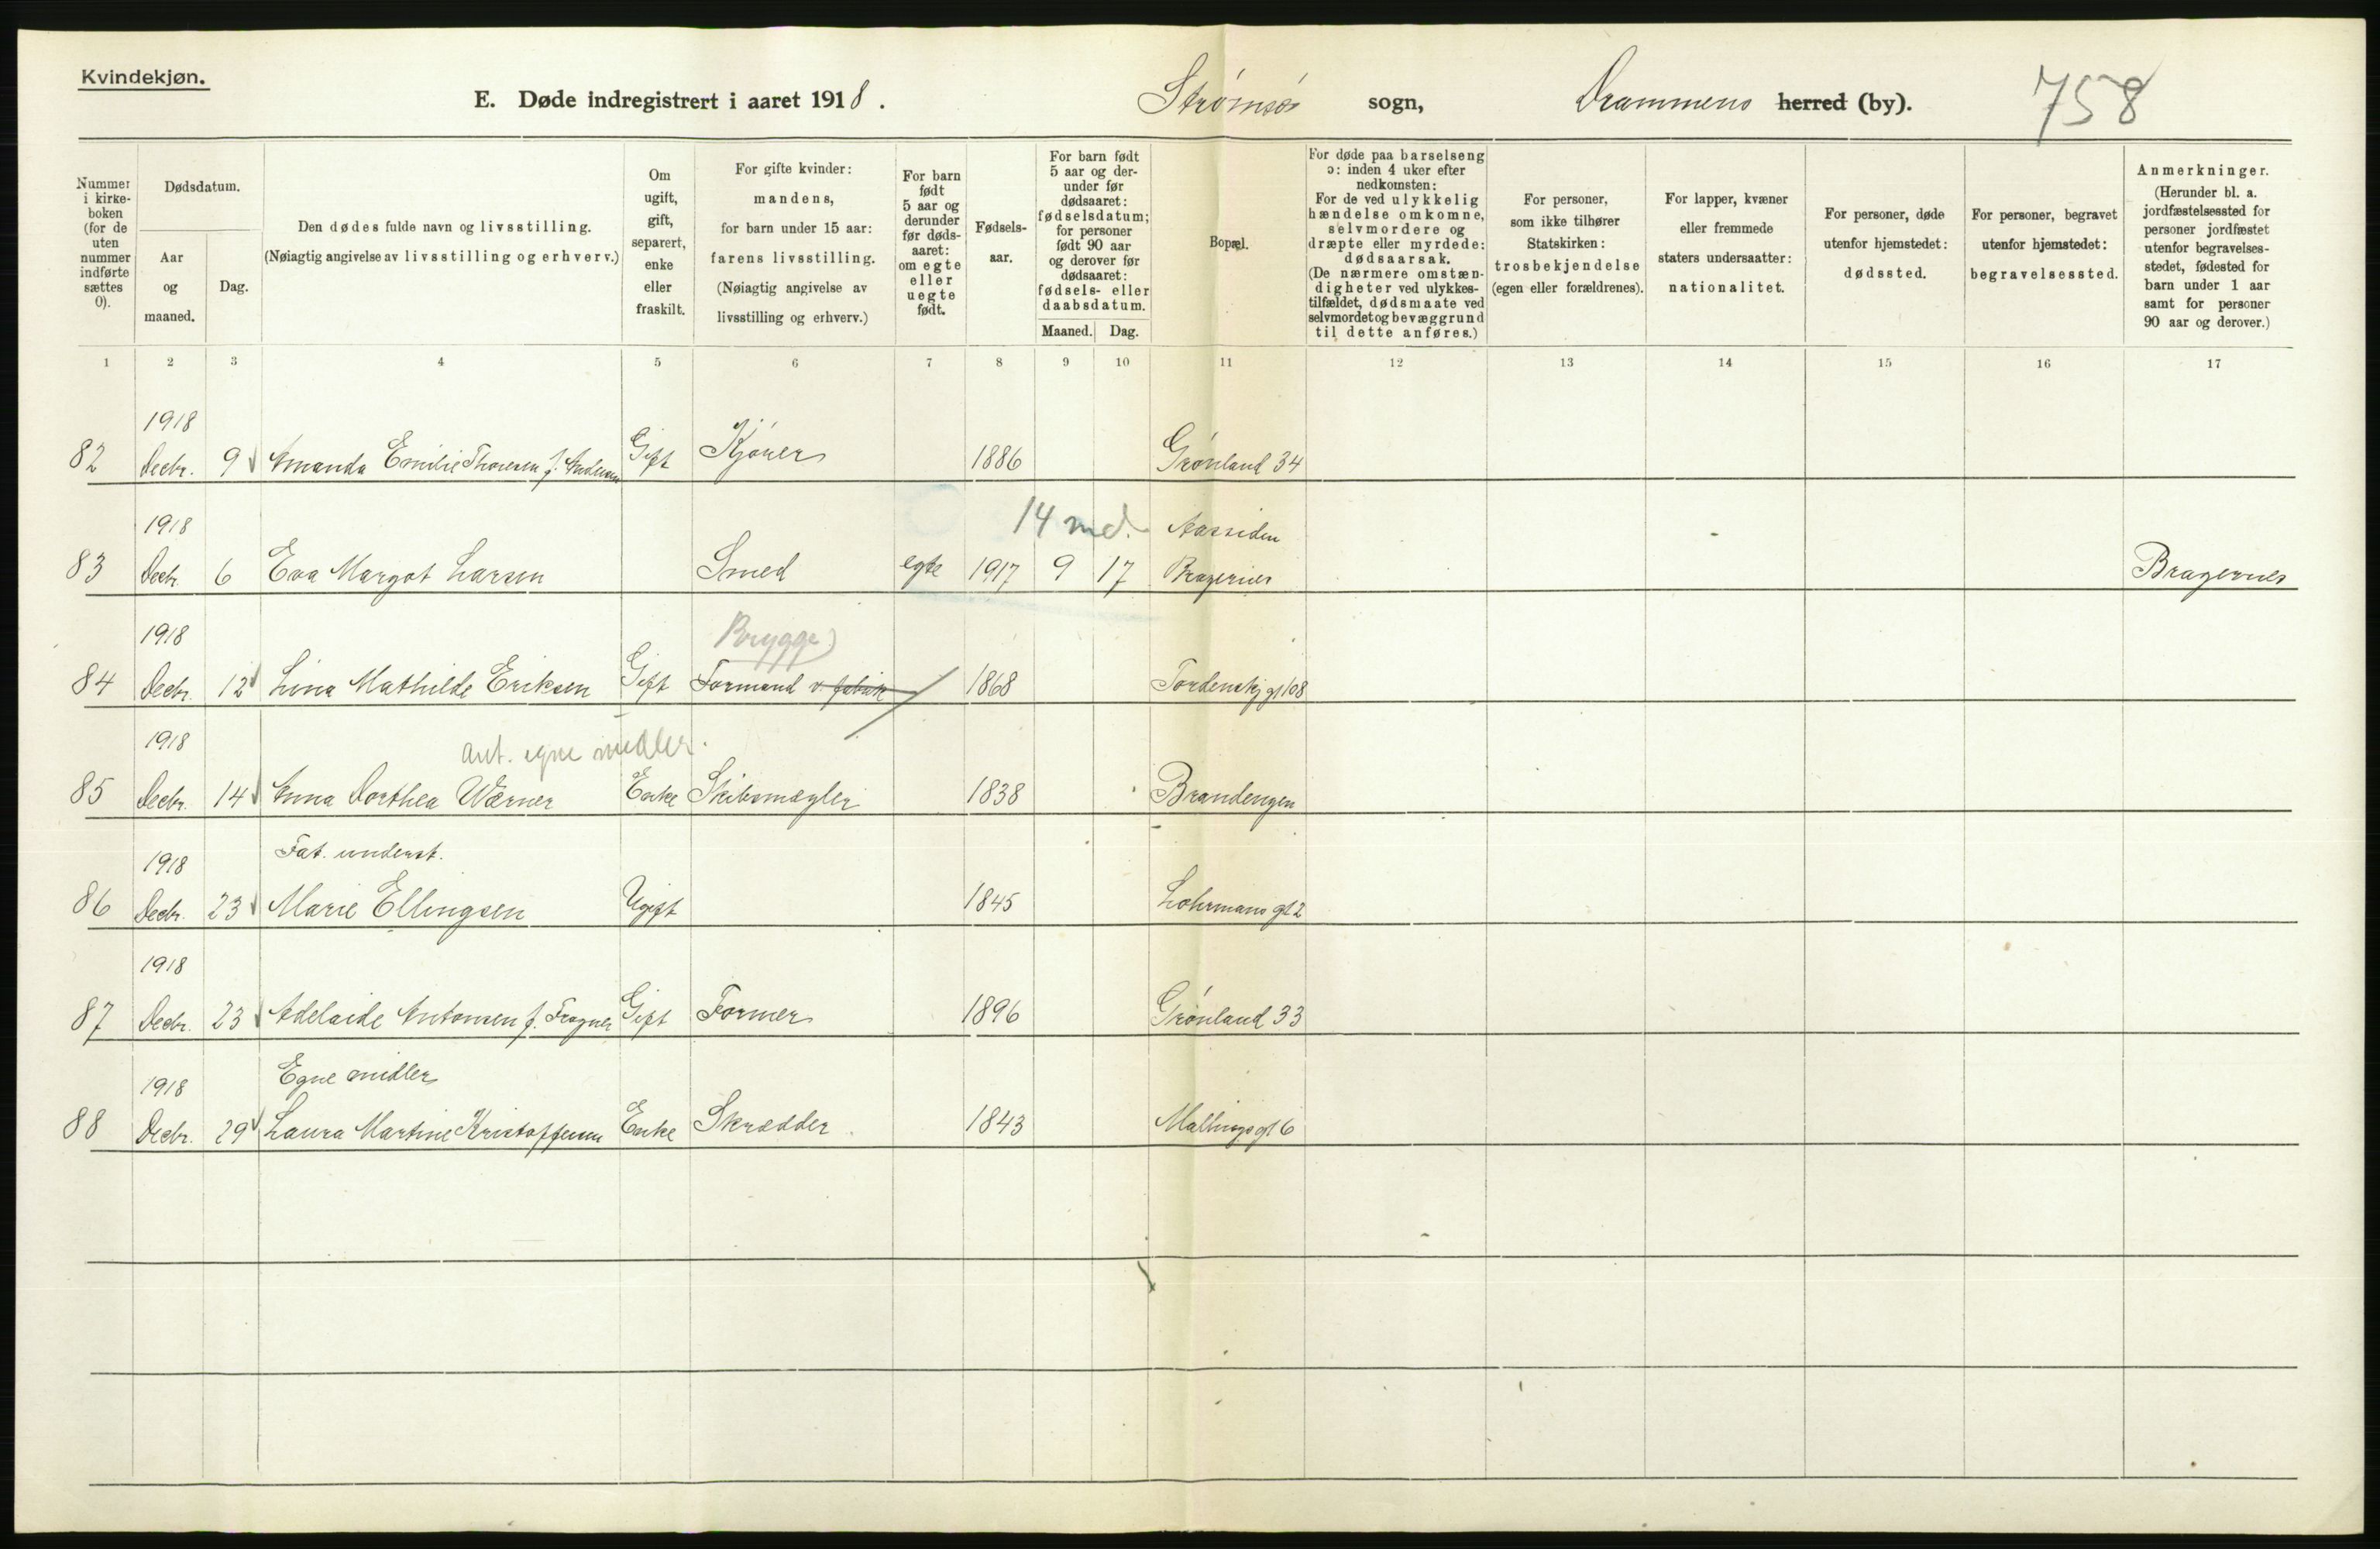 Kvindekjøn.
E. Døde indregistrert i aaret 1918. Strømsø sogn, Drammens herred (by). 758
Nummer i kirke-boken (for de uten nummer indførte sættes 0).
Dødsdatum.
Aar og maaned.
Dag.
Den dødes fulde navn og livsstilling.
(Nøiagtig angivelse av livsstilling og erhverv.)
Om ugift, gift, separert, enke eller fraskilt.
For gifte kvinder:
mandens,
for barn under 15 aar:
farens livsstilling.
(Nøiagtig angivelse av
livsstilling og erhverv.)
For barn født 5 aar og derunder før døds-aaret: om egte eller uegte født.
Fødsels-aar.
For barn født 5 aar og der-under før dødsaaret: fødselsdatum; for personer født 90 aar og derover før dødsaaret: fødsels- eller daabsdatum.
Maaned. Dag.
Bopæl.
For døde paa barselseng ɔ: inden 4 uker efter nedkomsten:
For de ved ulykkelig hændelse omkomne, selvmordere og dræpte eller myrdede: dødsaarsak.
(De nærmere omstæn-digheter ved ulykkes-tilfældet, dødsmaate ved selvmordet og bevæggrund til dette anføres.)
For personer, som ikke tilhører Statskirken: trosbekjendelse (egen eller forældrenes).
For lapper, kvæner eller fremmede staters undersaatter: nationalitet.
For personer, døde utenfor hjemstedet: dødssted.
For personer, begravet utenfor hjemstedet: begravelsessted.
Anmerkninger.
(Herunder bl. a. jordfæstelsessted for personer jordfæstet utenfor begravelses-stedet, fødested for barn under 1 aar samt for personer 90 aar og derover.)
1 2 3 4 5 6 7 8 9 10 11 12 13 14 15 16 17
1918
82 Decbr. 9 Amanda Emilie Thoresen f. Andersen Gift Kjører 1886 Grønland 34
1918 14 md. Aassiden
83 Decbr. 6 Eva Margot Larsen Smed egte 1917 9 17 Bragernes Bragernes
1918 Brygge
84 Decbr. 12 Lina Mathilde Eriksen Gift Formand v. fabrik 1868 Tordenskj gt 108
1918 ant. egne midler.
85 Decbr. 14 Anna Dorthea Wærner Enke Skibsmægler 1838 Brandengen
1918 Fat. underst.
86 Decbr. 23 Marie Ellingsen Ugift 1845 Lohrmans gt 2
1918
87 Decbr. 23 Adelaide Antonsen f. Fragner Gift Former 1896 Grønland 33
1918 Egne midler
88 Decbr. 29 Laura Martine Kristoffersen Enke Skrædder 1843 Mallings gt 6